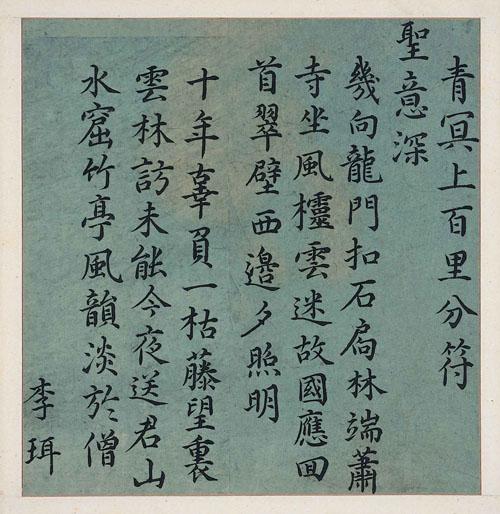 青冥上百里分符
聖意深
幾向龍門扣石扃林端蕭
寺坐風櫺雲迷故國應回
首翠壁西邉夕照明
十年辜負一枯藤望裏
雲林訪未能今夜送君山
水窟竹亭風韻淡於僧
李珥